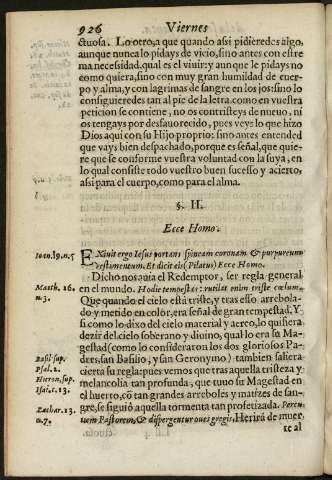 926 Viernes
ctuosa. Lo otro, a que quando assi pidieredes algo,
aunque nunca lo pidays de vicio, sino antes con estre
ma necessidad, qual es el viuir: y aunque le pidays no
como quiera, sino con muy gran humildad de cuer-
po y alma, y con lagrimas de sangre en los jos: sino lo
consiguieredes tan al pie de la letra. como en vuestra
peticion se contiene, no os contristeys de nueuo, ni
os tengays por desfauorecido, pues veys lo que hizo
Dios aqui con su Hijo proprio: sino antes entended
que vays bien despachado, porque es señal, que quie-
re que se conforme vuestra voluntad con la suya, en
lo qual consiste todo vuestro buen sucesso y acierto,
assi para el cuerpo, como para el alma.
§. II.
Ecce Homo.
Ioan. 19. n. 5
EXiuit ergo Iesus portans spineam coronam & purpureum
vestimentum. Et dicit eis (Pilatus) Ecce Homo.
Dicho nos auia el Redemptor, ser regla general
Matth. 16.
en el mundo. Hodie tempestas: rutilat enim triste cœlum.
n. 3.
Que quando el cielo està triste, y tras esso arrebola-
do y metido en color, era señal de gran tempestad. Y
si como lo dixo del cielo material y aereo, lo quisiera
dezir del cielo soberano y diuino, qual lo era su Ma-
gestad (como lo consideraton los dos gloriosos Pa-
Basil sup.
dres, san Basilio, y san Geronymo) tambien saliera
Psal. 2.
cierta su regla: pues vemos que tras aquella tristeza y
Hieron. sup.
melancolia tan profunda, que tuuo su Magestad en
Isai. c. 13.
el huerto, cõ tan grandes arreboles y matizes de san-
Zachar. 13.
gre, se siguiò aquella tormenta tan profetizada. Percu-
n. 7.
tiam Pastorem, & dispergentur oues gregis. Herirà de muer
te al